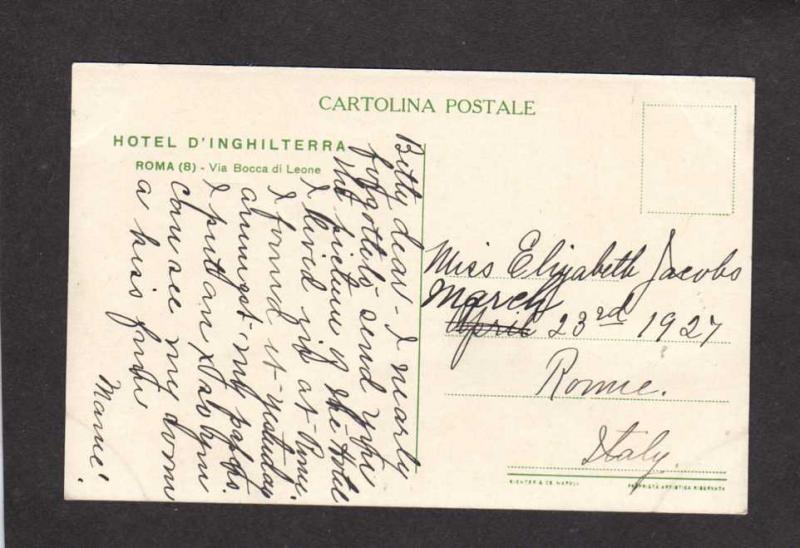 CARTOLINA POSTALE
HOTEL D'INGHILTERRA
ROMA (8) - Via Bocca di Leone
Betty dear - I nearly
forgotto send you
the picture of the Hotel
I livid in at Rome.
I found it yesterday
amongst my papers.
I put an X so you
can see my room
a kiss from
Mamie.
Miss Elizabeth Jacobs
March
April 23rd 1927
Rome.
Italy.
RICHTER & Co NAPOLI
PROPRIETÀ ARTISTICA RISERVATA